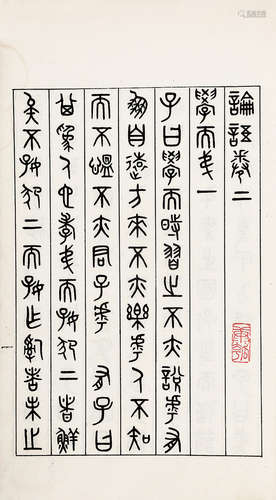 論語卷上
學而弟一
子曰學而時習之不亦說乎有
朋自遠方來不亦樂乎人不知
而不慍不亦君子乎 有子曰
其爲人也孝弟而好犯上者鮮
矣不好犯上而好作亂者未之